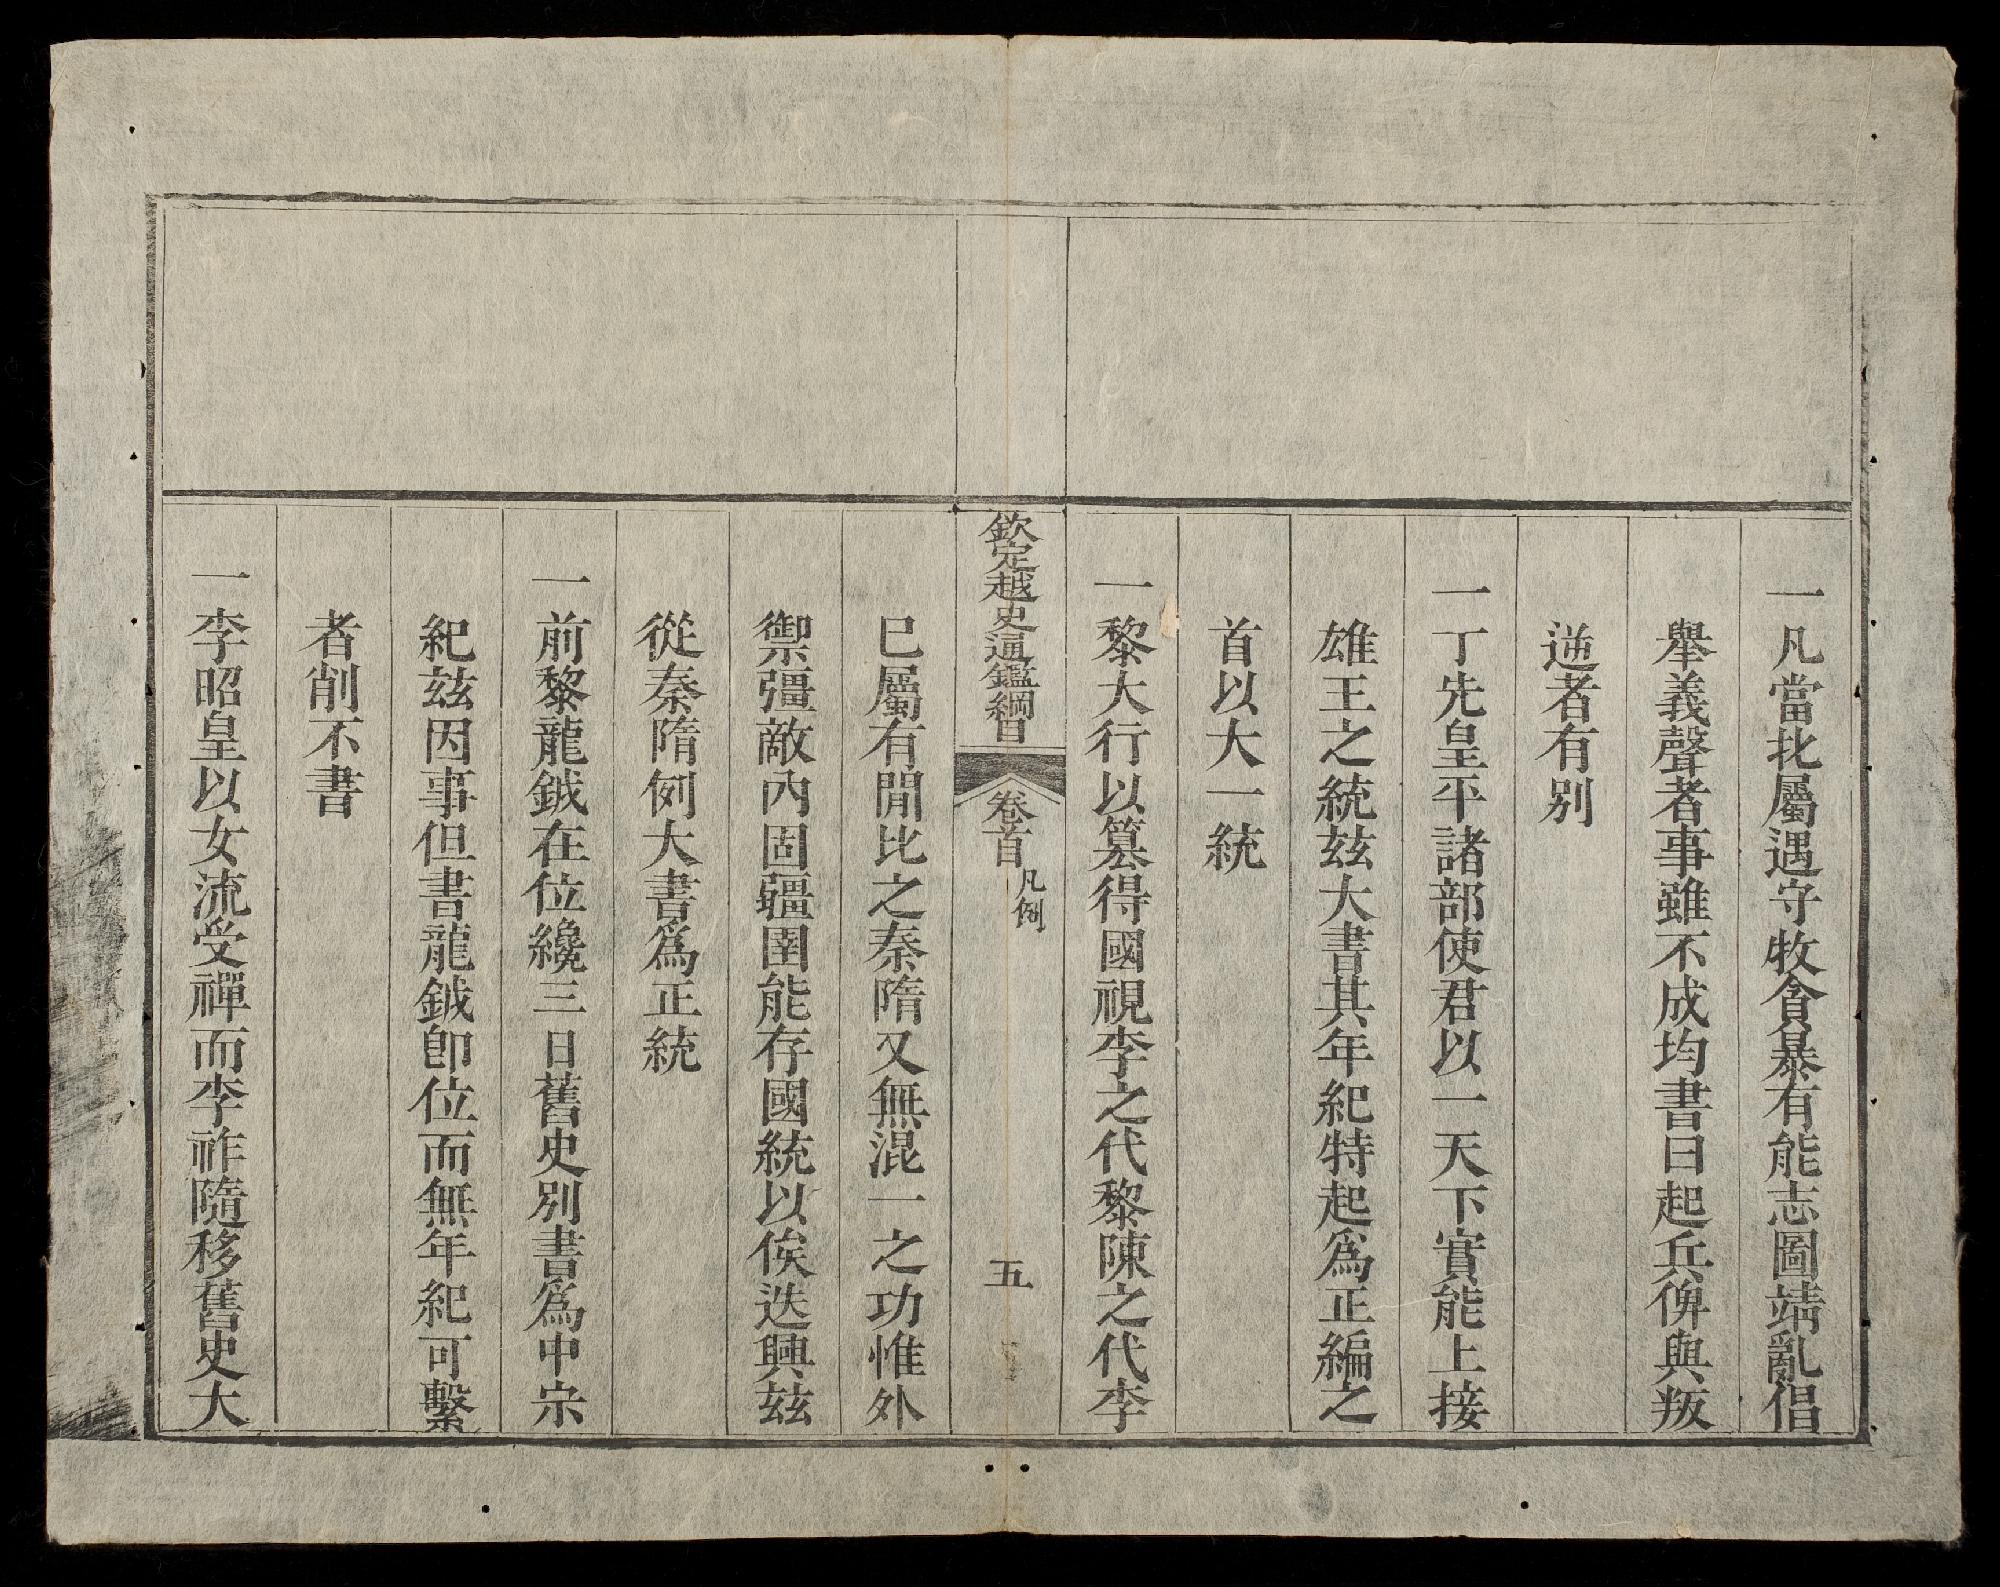 一凡當北屬遇守牧貪暴有能志圖靖亂倡
舉義聲者事雖不成均書曰起兵俾與叛
逆者有別
一丁先皇平諸部使君以一天下實能上接
雄王之統玆大書其年紀特起爲正編之
首以大一統
一黎大行以篡得國視李之代黎陳之代李
欽定越史通鑑綱目
卷首
凡例
五
已屬有間比之秦隋又無混一之功惟外
禦彊敵內固疆圉能存國統以俟迭興玆
從秦隋例大書爲正統
一前黎龍鉞在位纔三日舊史別書爲中宗
紀玆因事但書龍鉞即位而無年紀可繫
者削不書
一李昭皇以女流受禪而李祚隨移舊史大